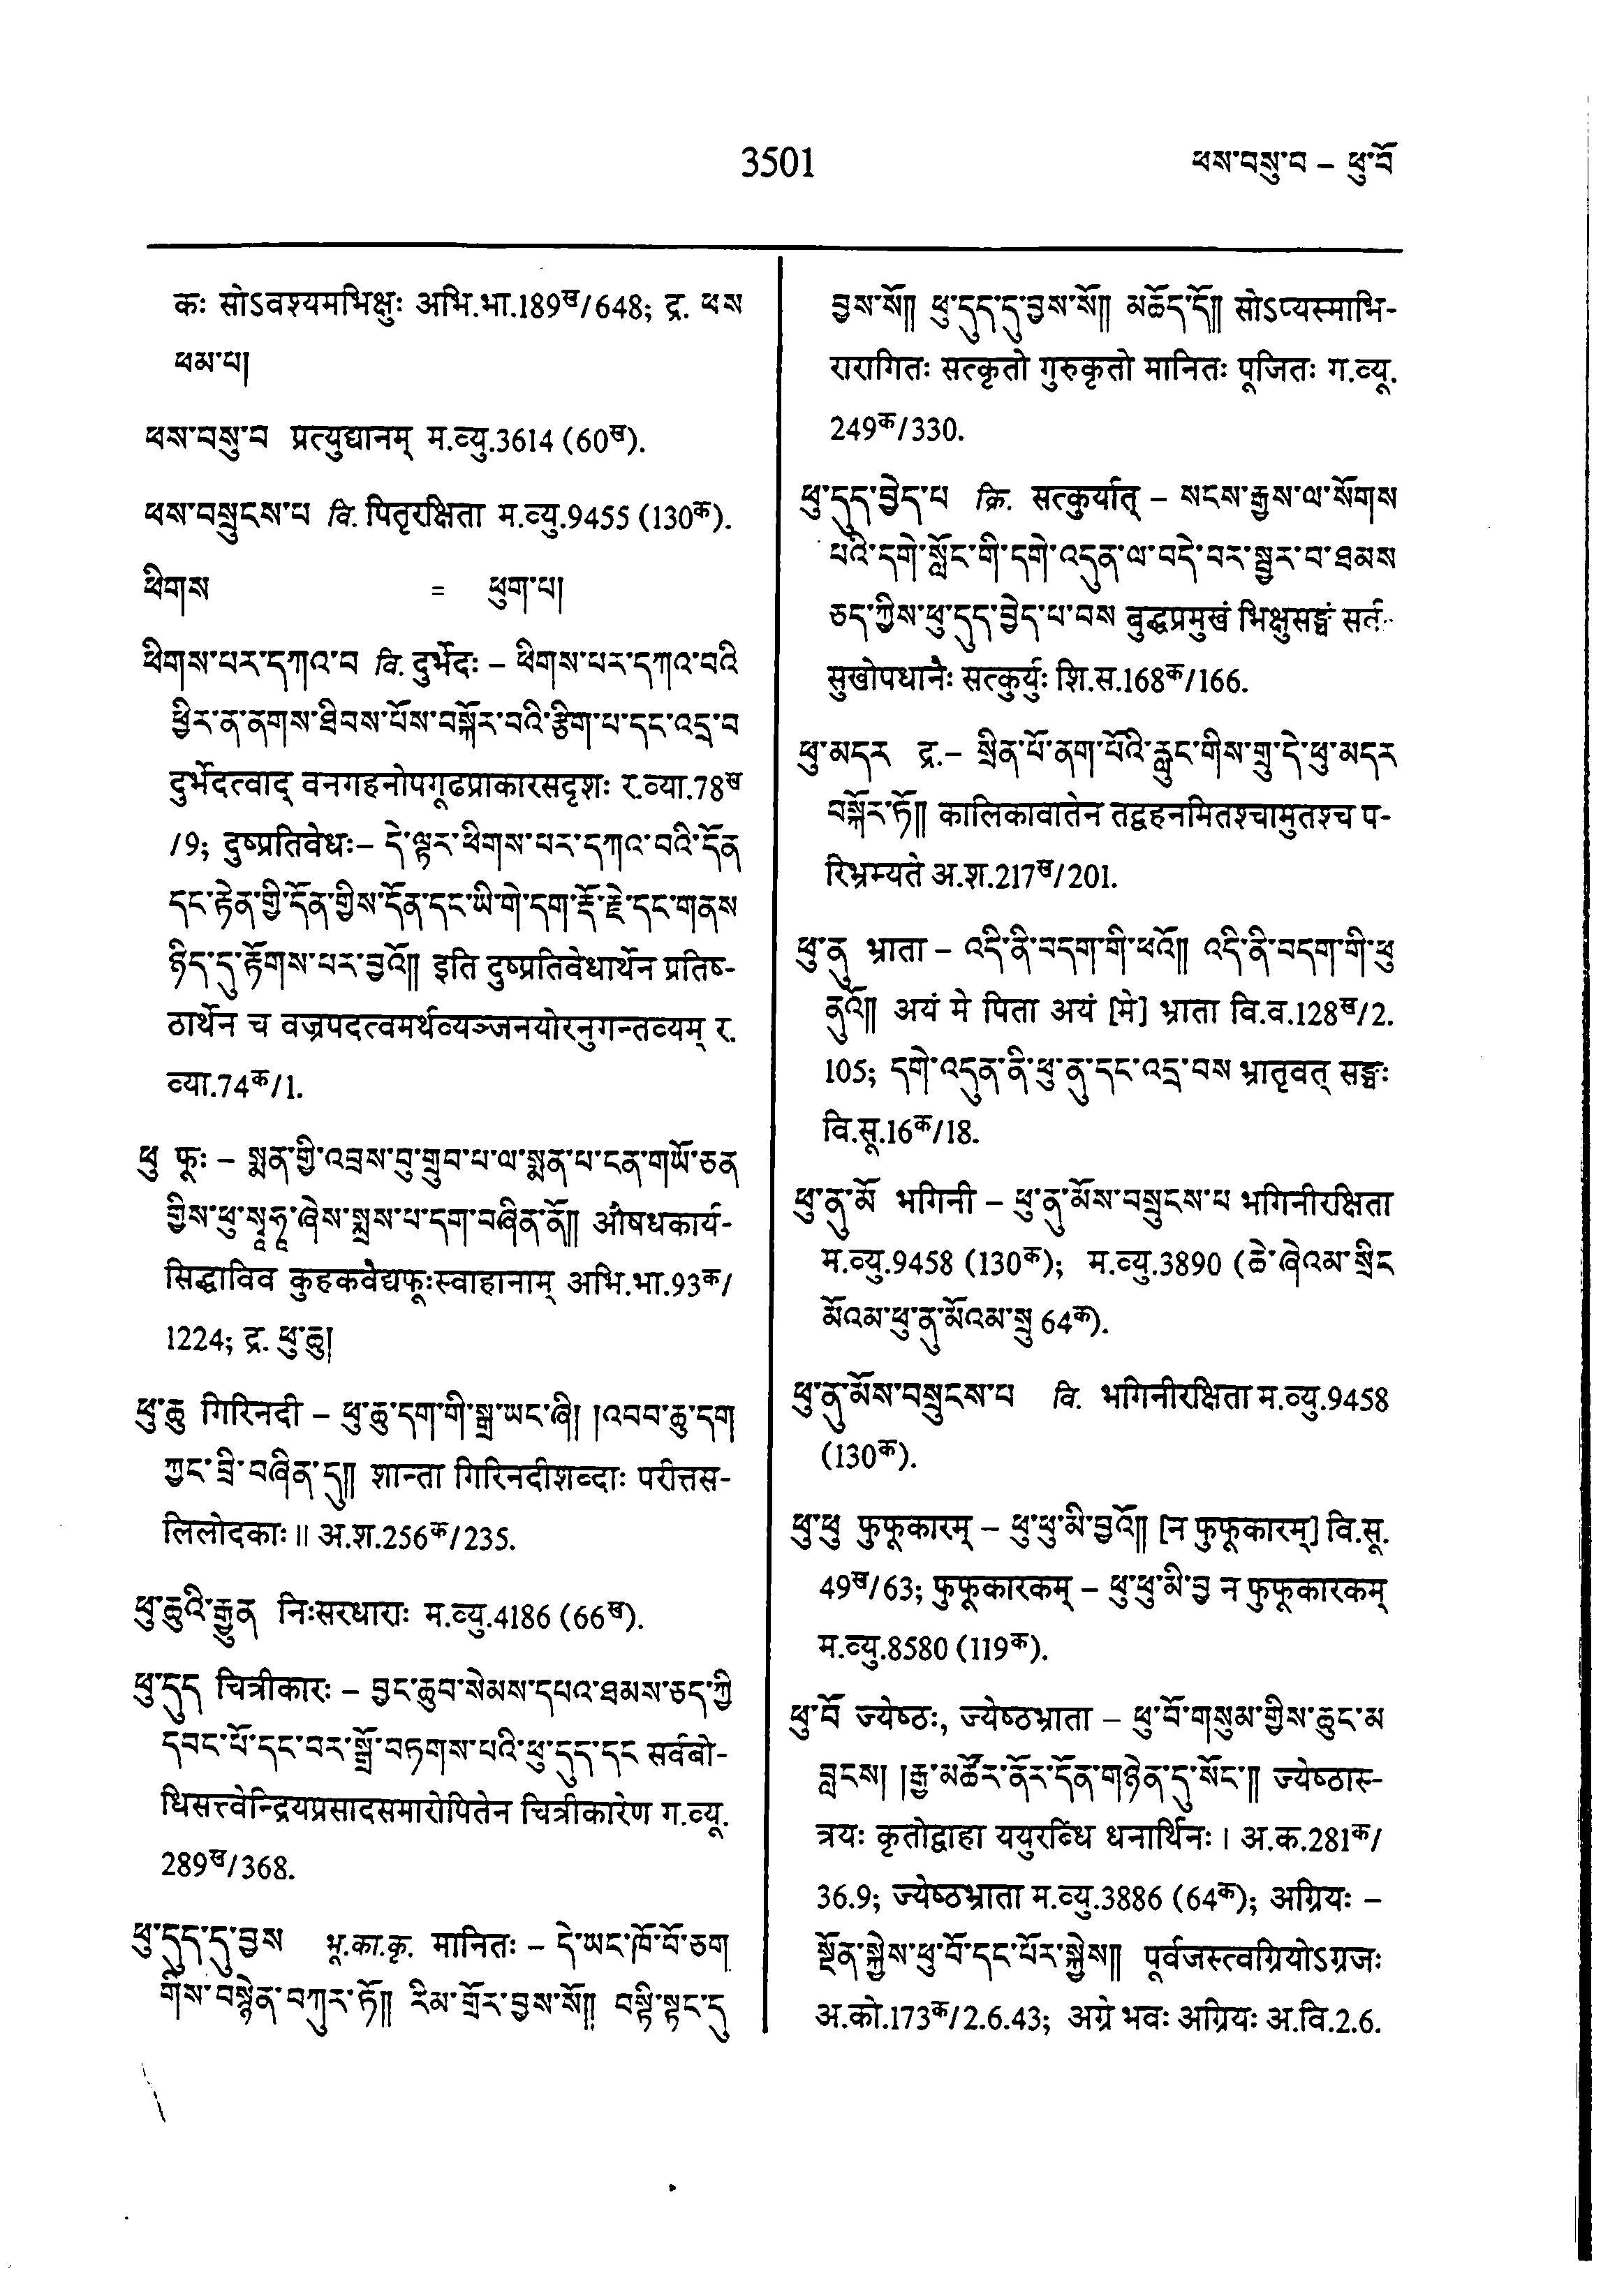 3501
ཕས་བསུ་བ – ཕུ་བོ
कः सोऽवश्यमभिक्षुः अभि.भा.189ख/648; द्र. ཕས
ཕམ་པ།
ཕས་བསུ་བ प्रत्युद्यानम् म.व्यु.3614 (60ख).
ཕས་བསྲུངས་པ वि. पितृरक्षिता म.व्यु.9455 (130क).
ཕིགས = ཕུག་པ།
ཕིགས་པར་དཀའ་བ वि. दुर्भेदः – ཕིགས་པར་དཀའ་བའི
ཕྱིར་ན་ནགས་ཐིབས་པོས་བསྐོར་བའི་རྩིག་པ་དང་འདྲ་བ
दुर्भेदत्वाद् वनगहनोपगूढप्राकारसदृशः र.व्या.78ख
/9; दुष्प्रतिवेधः– དེ་ལྟར་ཕིགས་པར་དཀའ་བའི་དོན
དང་རྟེན་གྱི་དོན་གྱིས་དོན་དང་ཡི་གེ་དག་རྡོ་རྗེ་དང་གནས
ཉིད་དུ་རྟོགས་པར་བྱའོ༎ इति दुष्प्रतिवेधार्थेन प्रतिष-
ठार्थेन च वज्रपदत्वमर्थव्यञ्जनयोरनुगन्तव्यम् र.
व्या.74क/1.
ཕུ फूः – སྨན་གྱི་འབྲས་བུ་གྲུབ་པ་ལ་སྨན་པ་ངན་གཡོ་ཅན
གྱིས་ཕུ་སྭཱ་ཧཱ་ཞེས་སྨྲས་པ་དག་བཞིན་ནོ༎ औषधकार्य-
सिद्धाविव कुहकवैद्यफूःस्वाहानाम् अभि.भा.93क/
1224; द्र. ཕུ་ཆུ།
ཕུ་ཆུ गिरिनदी – ཕུ་ཆུ་དག་གི་སྒྲ་ཡང་ཞི། །འབབ་ཆུ་དག
ཀྱང་བྲི་བཞིན་དུ༎ शान्ता गिरिनदीशब्दाः परीत्तस-
लिलोदकाः॥ अ.श.256क/235.
ཕུ་ཆུའི་རྒྱུན निःसरधाराः म.व्यु.4186 (66ख).
ཕུ་དུད चित्रीकारः – བྱང་ཆུབ་སེམས་དཔའ་ཐམས་ཅད་ཀྱི
དབང་པོ་དང་བར་སྒྲོ་བཏགས་པའི་ཕུ་དུད་དང सर्वबो-
धिसत्त्वेन्द्रियप्रसादसमारोपितेन चित्रीकारेण ग.व्यू.
289ख/368.
ཕུ་དུད་དུ་བྱས भू.का.कृ. मानितः – དེ་ཡང་ཁོ་བོ་ཅག
གིས་བསྙེན་བཀུར་ཏོ༎ རིམ་གྲོར་བྱས་སོ༎ བསྟི་སྟང་དུ
བྱས་སོ༎ ཕུ་དུད་དུ་བྱས་སོ༎ མཆོད་དོ༎ सोऽप्यस्माभि-
रारागितः सत्कृतो गुरुकृतो मानितः पूजितः ग.व्यू.
249क/330.
ཕུ་དུད་བྱེད་པ क्रि. सत्कुर्यात् – སངས་རྒྱས་ལ་སོགས
པའི་དགེ་སློང་གི་དགེ་འདུན་ལ་བདེ་བར་སྦྱར་བ་ཐམས
ཅད་ཀྱིས་ཕུ་དུད་བྱེད་པ་བས बुद्धप्रमुखं भिक्षुसङ्घं सर्व-
सुखोपधानैः सत्कुर्युः शि.स.168क/166.
ཕུ་མདར द्र.– སྲིན་པོ་ནག་པོའི་རླུང་གིས་གྲུ་དེ་ཕུ་མདར
བསྐོར་ཏོ༎ कालिकावातेन तद्वहनमितश्चामुतश्च प-
रिभ्रम्यते अ.श.217ख/201.
ཕུ་ནུ भ्राता – འདི་ནི་བདག་གི་ཕའོ༎ འདི་ནི་བདག་གི་ཕུ
ནུའོ༎ अयं मे पिता अयं [मे] भ्राता वि.व.128ख/2.
105; དགེ་འདུན་ནི་ཕུ་ནུ་དང་འདྲ་བས भ्रातृवत् सङ्घः
वि.सू.16क/18.
ཕུ་ནུ་མོ भगिनी – ཕུ་ནུ་མོས་བསྲུངས་པ भगिनीरक्षिता
म.व्यु.9458 (130क); म.व्यु.3890 (ཆེ་ཞེའམ་སྲིང
མོའམ་ཕུ་ནུ་མོའམ་སྲུ 64क).
ཕུ་ནུ་མོས་བསྲུངས་པ वि. भगिनीरक्षिता म.व्यु.9458
(130क).
ཕུ་ཕུ फुफूकारम् – ཕུ་ཕུ་མི་བྱའོ༎ [न फुफूकारम्] वि.सू.
49ख/63; फुफूकारकम् – ཕུ་ཕུ་མི་བྱ न फुफूकारकम्
म.व्यु.8580 (119क).
ཕུ་བོ ज्येष्ठः, ज्येष्ठभ्राता – ཕུ་བོ་གསུམ་གྱིས་ཆུང་མ
བླངས། །རྒྱ་མཚོར་ནོར་དོན་གཉེན་དུ་སོང་༎ ज्येष्ठास्-
त्रयः कृतोद्वाहा ययुरब्धिं धनार्थिनः। अ.क.281क/
36.9; ज्येष्ठभ्राता म.व्यु.3886 (64क); अग्रियः –
སྔོན་སྐྱེས་ཕུ་བོ་དང་པོར་སྐྱེས༎ पूर्वजस्त्वग्रियोऽग्रजः
अ.को.173क/2.6.43; अग्रे भवः अग्रियः अ.वि.2.6.